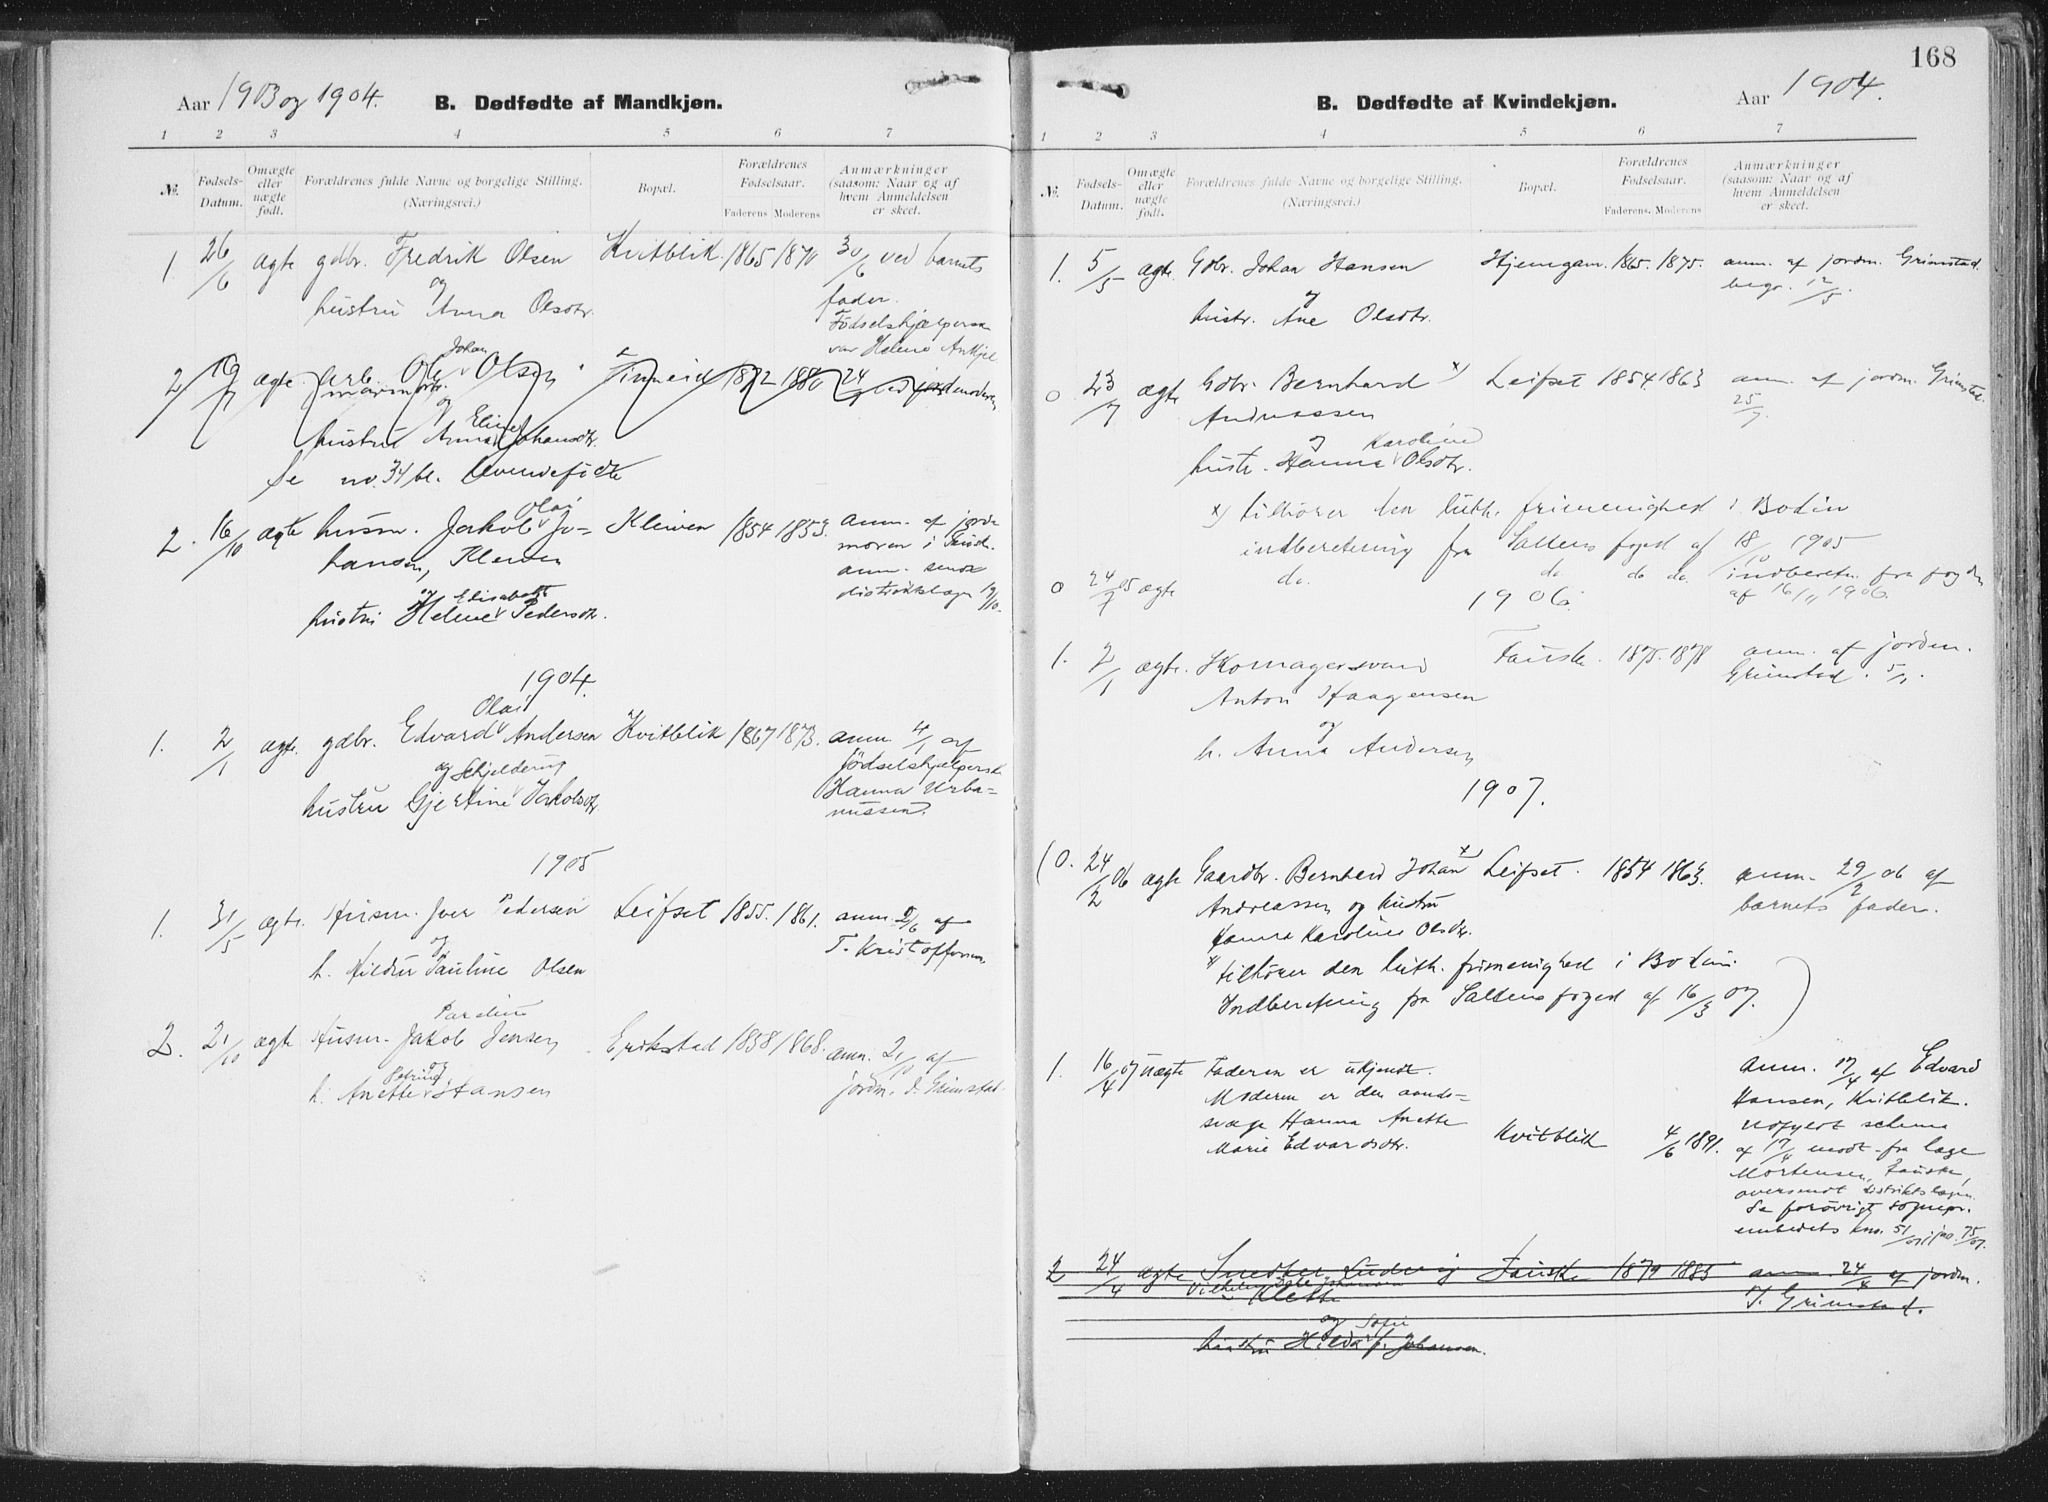 Aar 1903 og 1904.
B. Dødfødte af Mandkjøn.
1 2 3 4 5 6 7
№. Fødsels-Datum. Omægte eller nægte født. Forældrenes fulde Navne og borgelige Stilling. (Næringsvei.) Bopæl. Forældrenes Fødselsaar. Faderens Moderens Anmærkninger (saasom: Naar og af hvem Anmeldelsen er skeet.
1. 26/6 ægte gdbr. Fredrik Olsen Kvitblik. 1865 1870 30/6 ved barnets
og fader.
hustru Anna Olsdtr. Fødselshjælperske
var Helene
2 19/7 ægte. arb. Ole Johan Olsen Finneid 1872 1880 24/7 ved jordemoderen
og
hustru Anna Eline Johansdtr.
Se no. 34 bl. levendefødte
2. 16/10 ægte husm. Jakob Olai Jo- Kleiven 1854 1853. anm. af jorde
hansen, Kleiven moren i Fausk.
og anm. sendt
hustru Helene Elisabeth Pedersdtr. distriktslægen 19/10.
1904.
1. 2/1 ægte. gdbr. Edvard Olai Andersen Kvitblik 1867 1873. anm. 4/1 af
og fødselshjælperske
hustru Gjertine Schjelderup Jakobsdtr. Hanna Urba-
nussen.
1905
1. 31/5 ægte. Husm. Iver Pedersen Leifset 1855. 1861. anm. 2/6 af
og T. Kristoffersen
h. Hildur Pauline Olsen
2. 21/10 ægte Husm. Jakob Jensen Erikstad 1858 1868. anm. 21/10 af
og jordm. Grimstad.
h. Anette Petrine Hansen
168
B. Dødfødte af Kvindekjøn.
Aar 1904.
1 2 3 4 5 6 7
№. Fødsels-Datum. Omægte eller nægte født. Forældrenes fulde Navne og borgelige Stilling. (Næringsvei.) Bopæl. Forældrenes Fødselsaar. Faderens. Moderens Anmærkninger (saasom: Naar og af hvem Anmeldelsen er skeet.
1. 5/5 ægte. Gdbr. Johan Hansen Hjemgam. 1865. 1875. anm. af jordm. Grimstad.
og begr. 12/5.
hustr. Ane Olsdtr.
0 23/7 ægte Gdbr. Bernhard x) Leifset 1854 1863 anm. af jordm. Grimstad.
Andreassen 25/7.
og
hustr. Hanna Karoline Olsdtr.
x) tilhører den luth. frimenighed i Bodin
indberetning fra Saltens foged af 18/10 1905
0 24/7 05 ægte do. do do do. indberetn. fra fogden
af 16/11 1906.
1906.
1. 2/1 ægte. Komagersvend Fauske. 1875. 1878 anm. af jordm.
Anton Haagensen Grimstad. 5/1.
og
h. Anna Andersen
1907.
(0. 24/2 06 ægte Gaardbr. Bernhard Johan x) Leifset. 1854 1863. anm. 29/2 06 af
Andreassen og hustru barnets fader.
Hanna Karoline Olsdtr.
x tilhører den luth. frimenighed i Bodin.
Indberetning fra Saltens foged af 16/3 07. )
1. 16/4 07 uægte Faderen er ukjendt. anm. 17/4 af Edvard
Moderen er den aands- Hansen, Kvitblik.
svage Hanna Anette Udfyldt schema
Marie Edvardsdtr. Kvitblik 4/6 1891. af 17/4 modt. fra læge
Mortensen, Fauske,
oversendt distriktslægen.
Se forøvrigt sognepr.
embedets kno. 51/07, jno. 75/07.
2 24/4 ægte Snedker Ludvig Fauske 1879 1885 anm. 24/4 af jordm.
Klette T. Grimstad.
og
hustru Hilda Sofie f. Johansen.